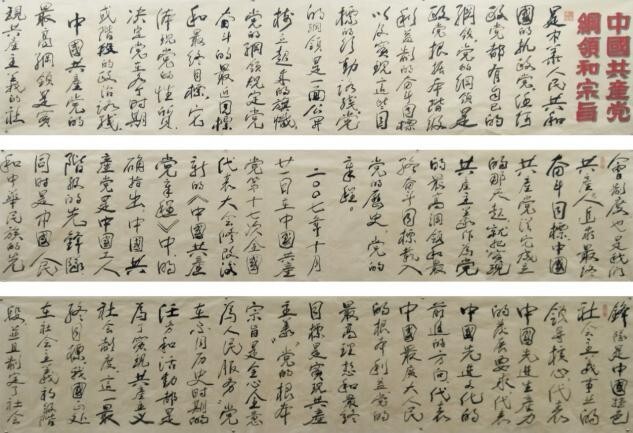 中國共產党
綱領和宗旨
是中華人民共和
國的执政党任何
政党都有自已的
綱領党的綱領是
政党根据本階級
利益制的奋目標
以及实現这些目
標的行動路线党
的綱領是一面公开
树立起来的旗幟
党的綱領规定党
奋斗的最近目標
和最終目標它
体現党的性質
决定党在各个时期
或階段的政治路线
中國共產党的
最高綱領是实
現共產主義的社
會制度也是我們
共產人追求最終
奋斗目標中國
共產党從它成立
的那天起就把实現
共產主义作為党
的最高綱領和最
終奋斗目標載入
党的歷史党的
章程。
二〇〇七年十月
廿一日在中國共產
党第十七次全國
代表大会修改法
新的《中國共產
党章程》中明
确指出中國共
產党是中國工人
階級的先鋒隊
同时是中國人民
和中華民族的先
鋒隊是中國特色
社会主義事业的
領导核心代表
中國先進生產力
的发展要求代表
中國先進文化的
前進的方向代表
中國最廣大人民
的根本利益党的
最高理想和最終
目標是实現共產
主義党的根本
宗旨是全心全意
為人民服务党
在不同历史时期的
任务和活動都是
為了实現共產主义
社会制度这一最
終目標我國正处
在社会主義初級階
段並且制定了社会